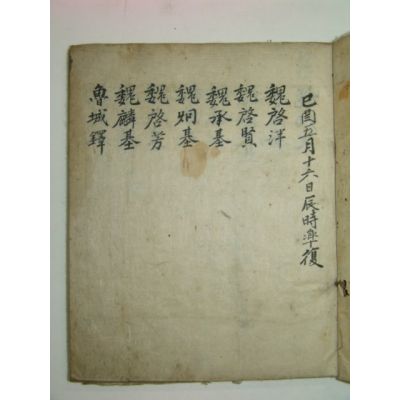 己酉五月十六日辰時準復
魏啓泮
魏啓賢
魏承基
魏炯基
魏啓芳
魏麟基
魯城鐸